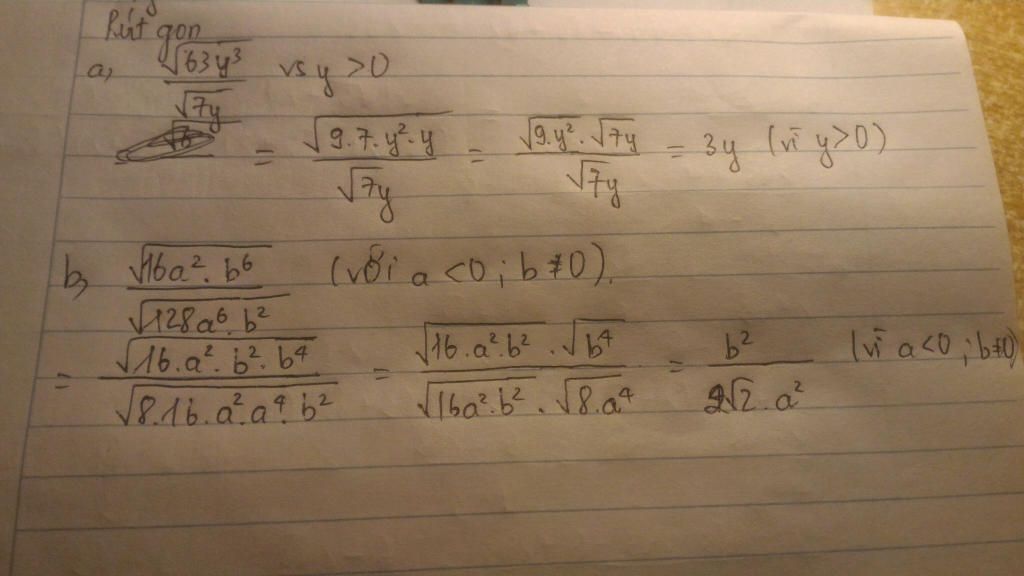 Rút gọn
a, √63y³ / √7y vs y > 0
= √9.7.y².y / √7y = √9.y².√7y / √7y = 3y (vì y>0)
b, √16a².b⁶ / √128a⁶.b² (với a <0 ; b ≠0).
= √16.a².b².b⁴ / √8.16.a².a⁴.b² = √16.a².b².√b⁴ / √16a².b².√8.a⁴ = b² / 2√2.a² (vì a<0 ; b≠0)